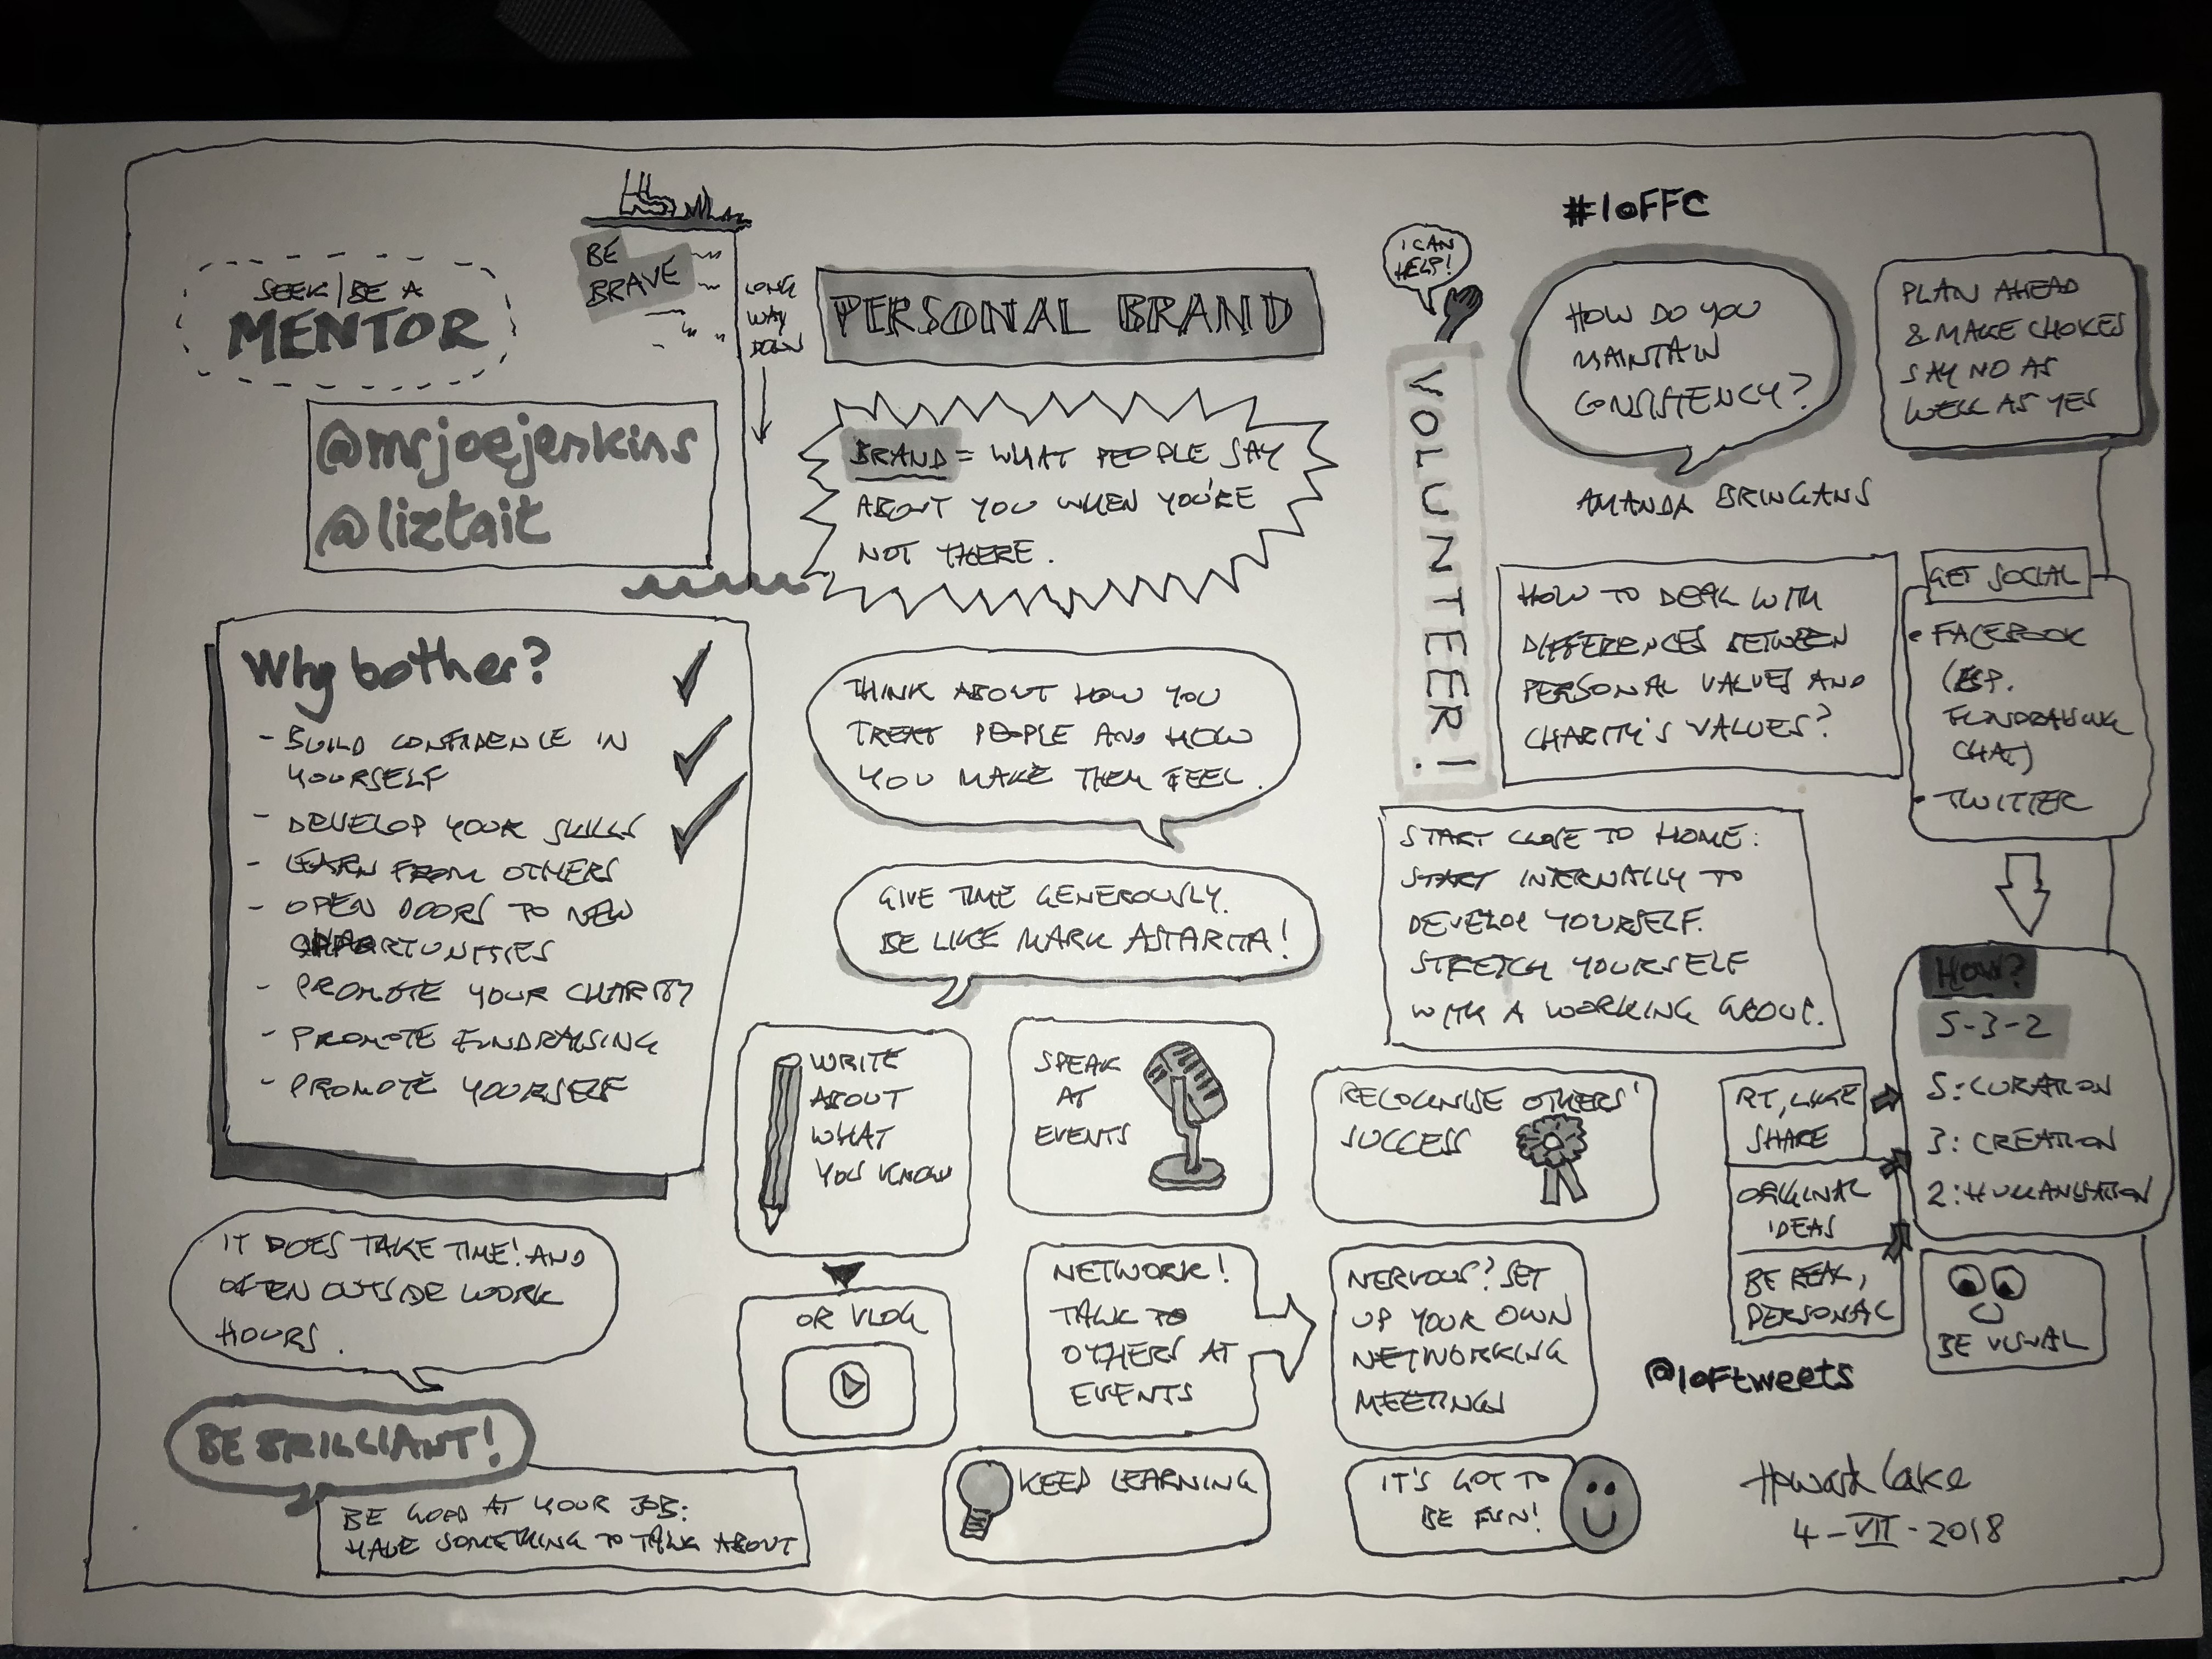 SEEK/BE A
MENTOR
BE
BRAVE
LONG
WAY
DOWN
PERSONAL BRAND
#IOFFC
@mrjoejenkins
@liztait
BRAND = WHAT PEOPLE SAY
ABOUT YOU WHEN YOU'RE
NOT THERE.
I CAN
HELP!
VOLUNTEER!
HOW DO YOU
MAINTAIN
CONSISTENCY?
AMANDA BRINGANS
PLAN AHEAD
& MAKE CHOICES
SAY NO AS
WELL AS YES
Why bother?
- BUILD CONFIDENCE IN
YOURSELF
- DEVELOP YOUR SKILLS
- LEARN FROM OTHERS
- OPEN DOORS TO NEW
OPPORTUNITIES
- PROMOTE YOUR CHARITY
- PROMOTE FUNDRAISING
- PROMOTE YOURSELF
THINK ABOUT HOW YOU
TREAT PEOPLE AND HOW
YOU MAKE THEM FEEL.
GIVE TIME GENEROUSLY.
BE LIKE MARK ASTARITA!
HOW TO DEAL WITH
DIFFERENCES BETWEEN
PERSONAL VALUES AND
CHARITY'S VALUES?
START CLOSE TO HOME:
START INTERNALLY TO
DEVELOP YOURSELF.
STRETCH YOURSELF
WITH A WORKING GROUP.
GET SOCIAL
• FACEBOOK
(ESP.
FUNDRAISING
CHAT)
• TWITTER
HOW?
5-3-2
5: CURATION
3: CREATION
2: HUMANISATION
RT, LIKE
SHARE
ORIGINAL
IDEAS
BE REAL,
PERSONAL
IT DOES TAKE TIME! AND
OFTEN OUTSIDE WORK
HOURS.
WRITE
ABOUT
WHAT
YOU KNOW
SPEAK
AT
EVENTS
RECOGNISE OTHERS'
SUCCESS
BE BRILLIANT!
BE GOOD AT YOUR JOB:
HAVE SOMETHING TO TALK ABOUT
OR VLOG
NETWORK!
TALK TO
OTHERS AT
EVENTS
NERVOUS? SET
UP YOUR OWN
NETWORKING
MEETING
KEEP LEARNING
IT'S GOT TO
BE FUN!
BE VISUAL
@IoFtweets
Howard Lake
4-VII-2018